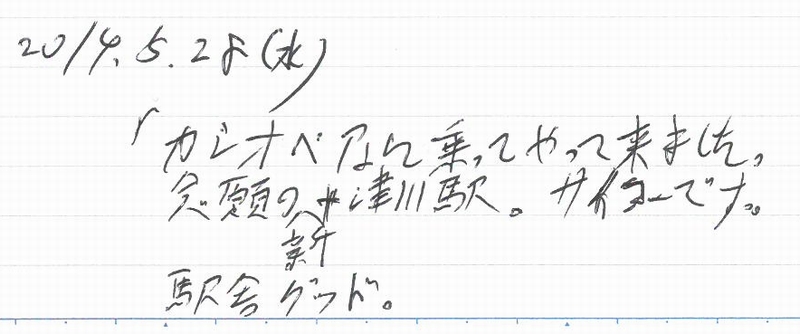 2014.5.28(水)
「カシオペアなん乗ってやって来ました。
念願の新十津川駅。サイコーです。
駅舎グッド。